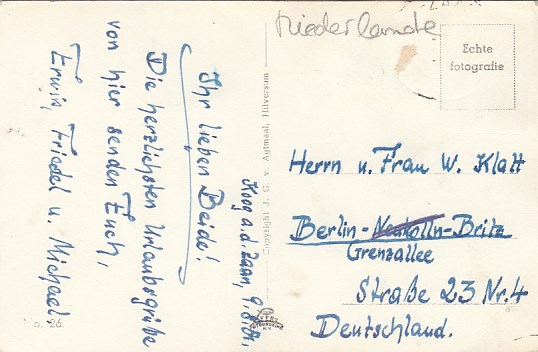 Niederlande
Echte
fotografie
Koog a.d. Zaan, 9.8.61.
Ihr lieben Beide!
Die herzlichsten Urlaubsgrüße
von hier senden Euch,
Erwin, Friedel u. Michael.
Copyright J. C. v. Agtmaal, Hilversum
Herrn u. Frau W. Klatt
Berlin-Neukölln-Britz
Grenzallee
Straße 23 Nr. 4
Deutschland.